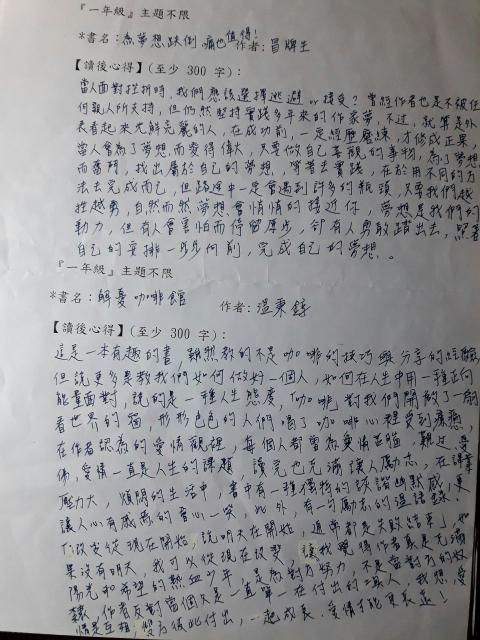 『一年級』主題不限
*書名：為夢想跌倒，痛也值得！ 作者：冒牌生
【讀後心得】(至少 300 字)：
當人面對挫折時，我們應該選擇逃避or接受？曾經作者也是不被任
何親人所支持，但仍然堅持實踐多年來的作家夢，不過，就算是外
表看起來光鮮亮麗的人，在成功前，一定經歷磨練，才修成正果，
當人會為了夢想而變得偉大，只要做自己喜觀的事物，為了夢想
而奮鬥，找出屬於自己的夢想，等著去實踐，在於用不同的方
法去完成而已，但路途中一定會遇到許多的瓶頸，只要我們越
挫越勇，自然而然夢想會悄悄的接近你，夢想是我們的
動力，但有人會害怕而停留原步，卻有人勇敢踏出去，照著
自己的安排一步步向前，完成自己的夢想。
『一年級』主題不限
*書名：解憂咖啡館 作者：溫秉錞
【讀後心得】(至少 300 字)：
這是一本有趣的書，雖然教的不是咖啡的技巧與分享的經驗
但說更多是教我們如何做好一個人，如何在人生中用一種正向
能量面對，說的是一種人生態度，「咖啡」對我們開啟了一扇
看世界的窗，形形色色的人們，喝了咖啡心裡受到療癒，
在作者認為的愛情觀裡，每個人都曾為愛情苦腦、難過、受
傷，愛情一直是人生的課題，讀完也充滿讓人勵志，在課業
壓力大，煩悶的生活中，書中有一種獨特的詼諧幽默感，更
讓人心有戚焉的會心一笑，此外，有一句勵志的溫語錄！
「改變從現在開始，說明天在開始，通常都是失敗結束」，如
果沒有明天，我可以從現在改變，讓我覺得作者真是充滿
陽光和希望的熱血少年，是為對方努力，不是當對方的奴
隸，作者反對當個只是一直單一在付出的人，我想，愛
情是互相，雙方彼此付出，一起成長，愛情才能更長遠！